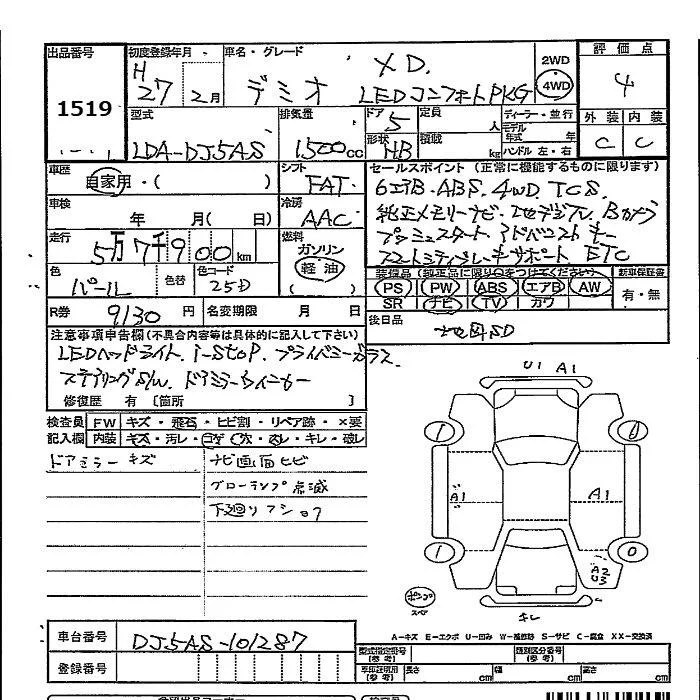 出品番号 初度登録年月 車名・グレード 2WD 4WD 評価点
1519 H27 2月 デミオ XD. LEDコンフォートPKG 4
型式 排気量 ドア 5 定員 人 ディーラー・並行 外装 内装
LDA-DJ5AS 1500cc 形状 HB 積載 kg モデル年式 年 ハンドル 左・右 C C
車歴 自家用・( ) シフト FAT セールスポイント (正常に機能するものに限ります)
6エアB. ABS. 4WD. TCS.
車検 年 月( 日) 冷房 AAC 純正メモリーナビ. 地デジTV. Bカメラ
走行 5万7千900km 燃料 ガソリン 軽油 ( ) プッシュスタート. アドバンストキー
スマートシティブレーキサポート ETC
色 パール 色替 色コード 25D 装備品 (純正品に限り○をつけてください) 新車保証書
PS PW ABS エアB AW 有・無
SR ナビ TV カワ
R券 9130円 名変期限 月 日 後日品 地図SD
注意事項申告欄(不具合内容等は具体的に記入して下さい)
LEDヘッドライト. i-stop. プライバシーガラス
ステアリングS/W. ドアミラーウィンカー
修復歴 有 〔箇所 〕
検査員 FW キズ・飛石・ヒビ割・リペア跡・×要
記入欄 内装 キズ・汚レ・コゲ・穴・スレ・キレ・破レ
ドアミラーキズ ナビ画面ヒビ
グローランプ点滅
下廻りアショック
U1 A1
A1 A1
A2
U3
キレ
スペア
A-キズ E-エクボ U-凹み W-補修跡 S-サビ C-腐食 XX-交換済
車台番号 DJ5AS-101287 型式指定番号(参考) 類別区分番号(参考)
登録番号 長さ cm 幅 cm 高さ cm